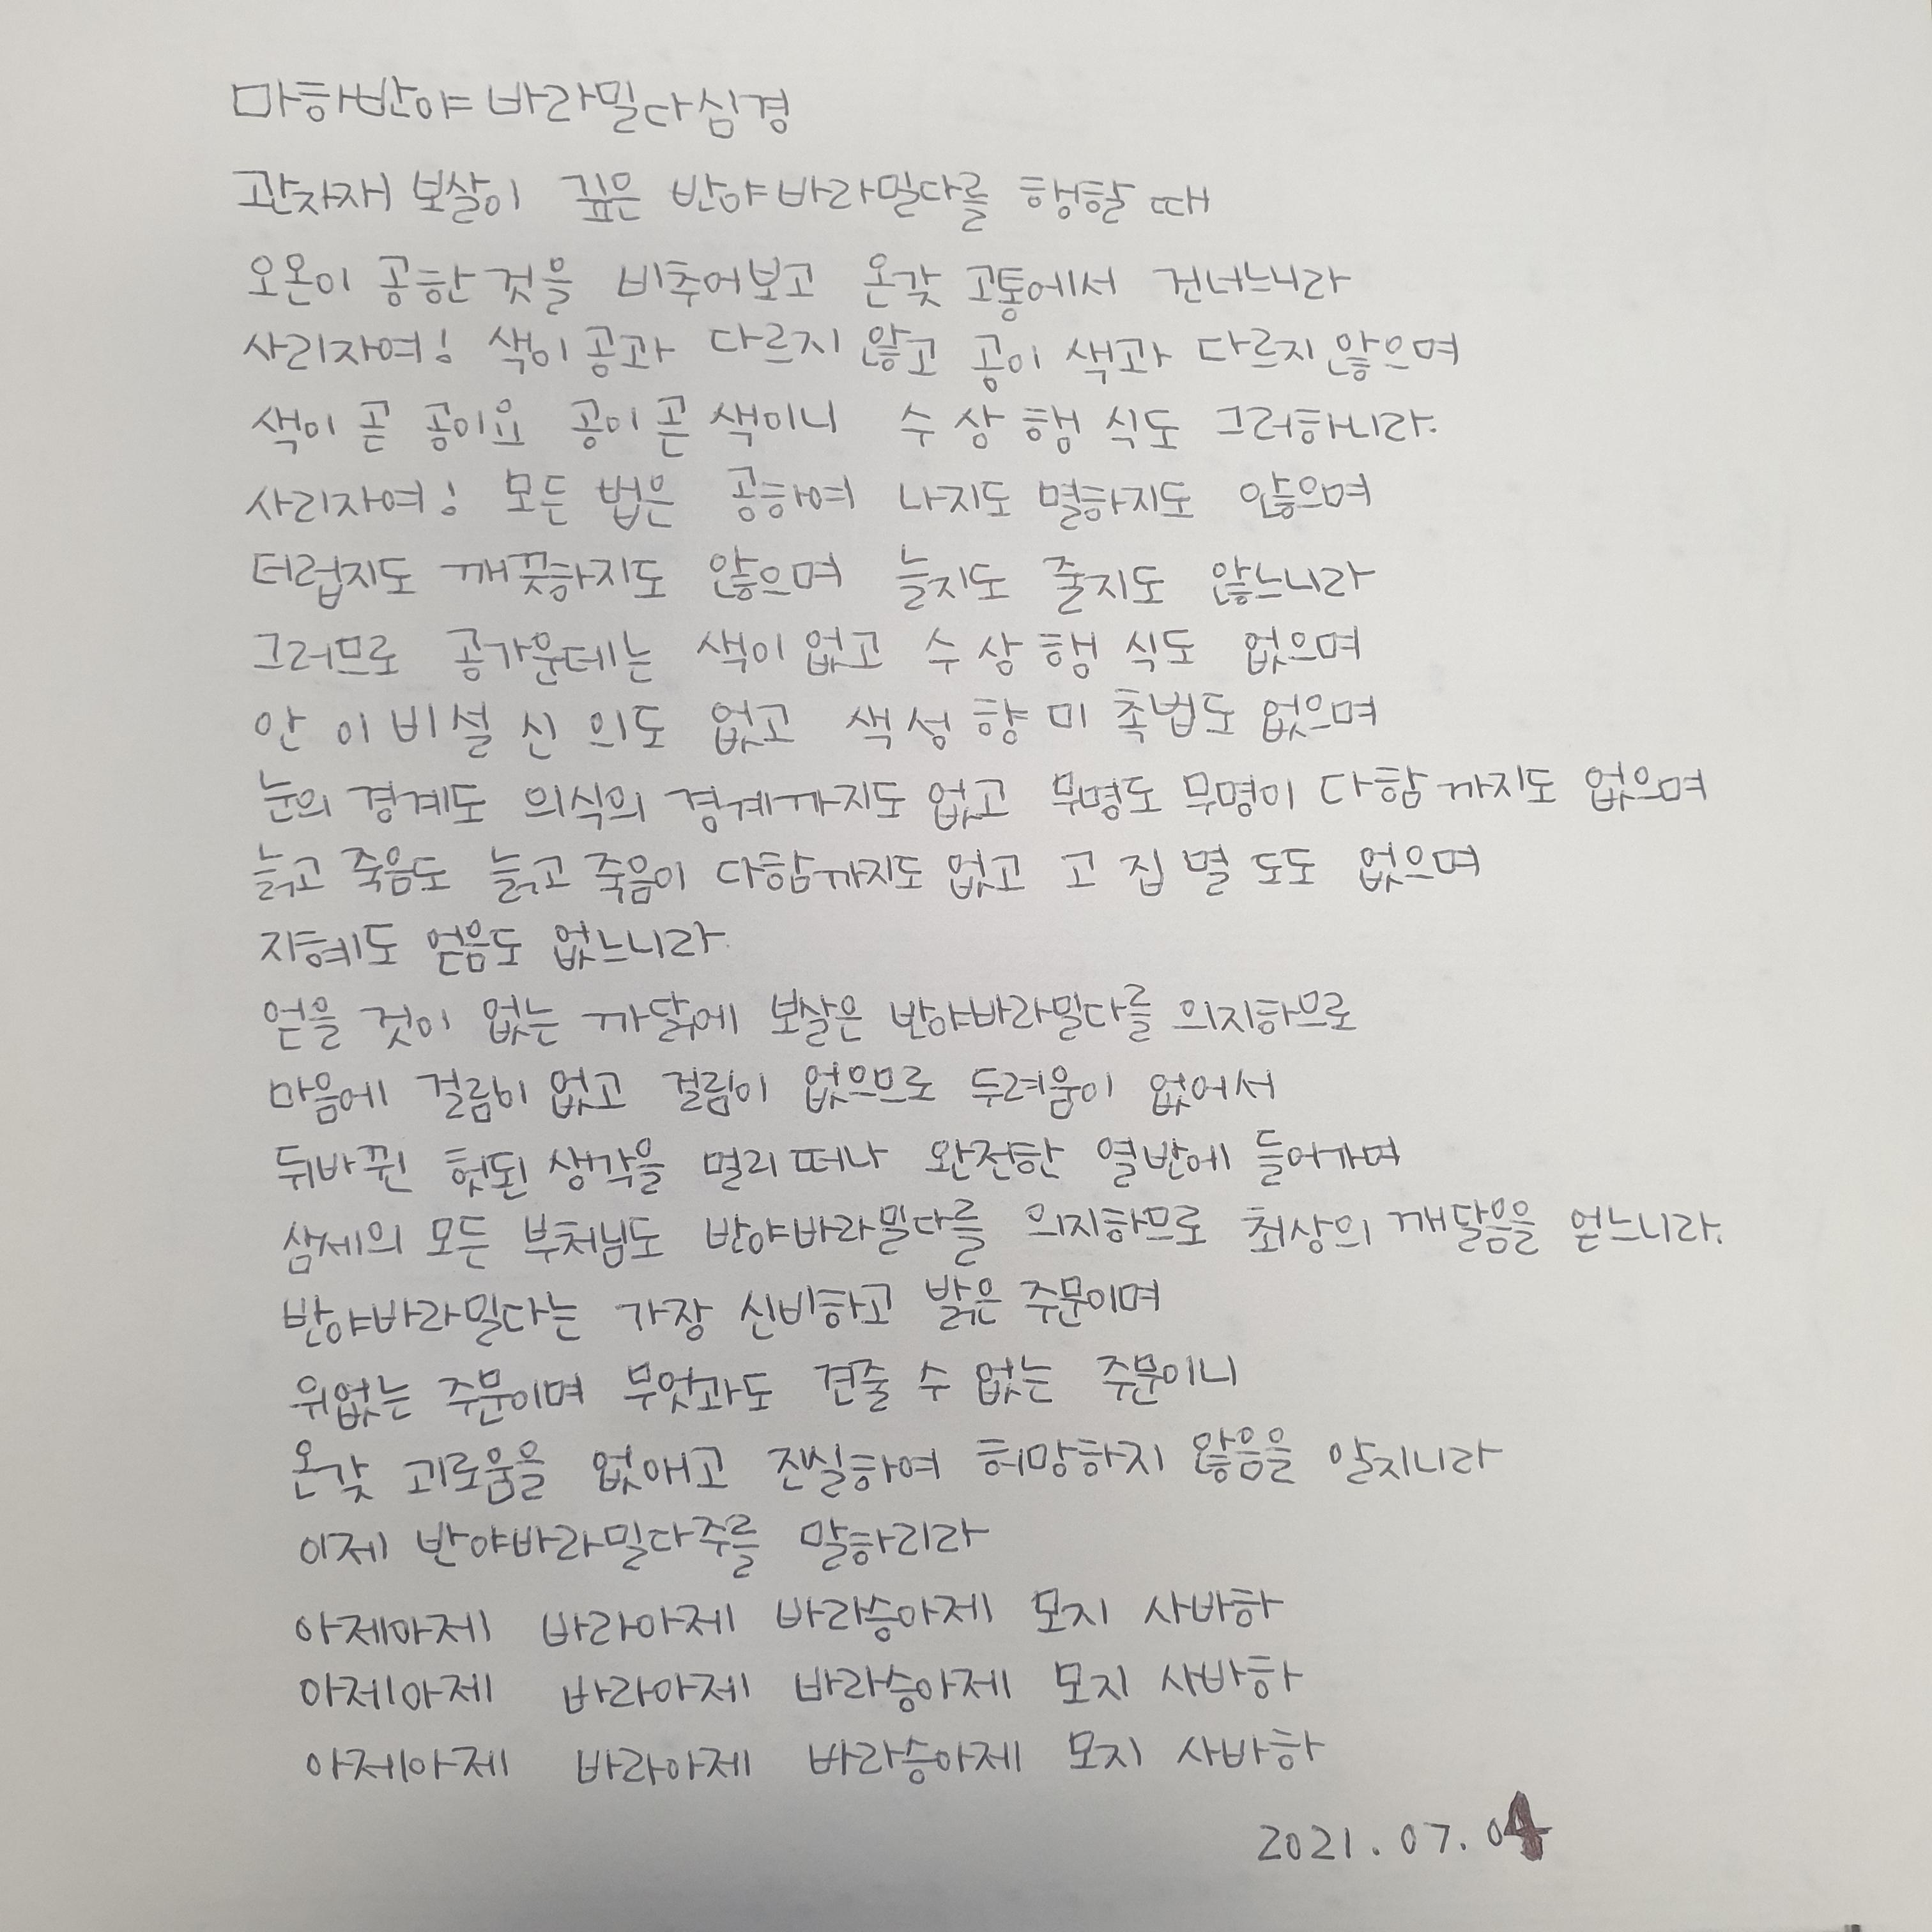 마하반야바라밀다심경
관자재보살이 깊은 반야바라밀다를 행할 때
오온이 공한 것을 비추어보고 온갖 고통에서 건너느니라
사리자여! 색이 공과 다르지 않고 공이 색과 다르지 않으며
색이 곧 공이요 공이 곧 색이니 수 상 행 식도 그러하니라.
사리자여! 모든 법은 공하여 나지도 멸하지도 않으며
더럽지도 깨끗하지도 않으며 늘지도 줄지도 않느니라
그러므로 공가운데는 색이 없고 수 상 행 식도 없으며
안 이 비 설 신 의도 없고 색 성 향 미 촉 법도 없으며
눈의 경계도 의식의 경계까지도 없고 무명도 무명이 다함까지도 없으며
늙고 죽음도 늙고 죽음이 다함까지도 없고 고 집 멸 도도 없으며
지혜도 얻음도 없느니라.
얻을 것이 없는 까닭에 보살은 반야바라밀다를 의지하므로
마음에 걸림이 없고 걸림이 없으므로 두려움이 없어서
뒤바뀐 헛된 생각을 멀리 떠나 완전한 열반에 들어가며
삼세의 모든 부처님도 반야바라밀다를 의지하므로 최상의 깨달음을 얻느니라.
반야바라밀다는 가장 신비하고 밝은 주문이며
위없는 주문이며 무엇과도 견줄 수 없는 주문이니
온갖 괴로움을 없애고 진실하여 허망하지 않음을 알지니라
이제 반야바라밀다주를 말하리라
아제아제 바라아제 바라승아제 모지 사바하
아제아제 바라아제 바라승아제 모지 사바하
아제아제 바라아제 바라승아제 모지 사바하
2021.07.04